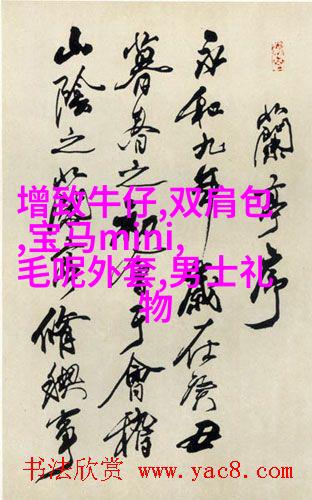 蘭亭序
永和九年歲在癸丑
暮春之初會于會稽
山陰之蘭亭脩禊事
增致牛仔,双肩包
,宝马mini,
毛呢外套,男士礼
物
书法欣赏 www.yac8.com